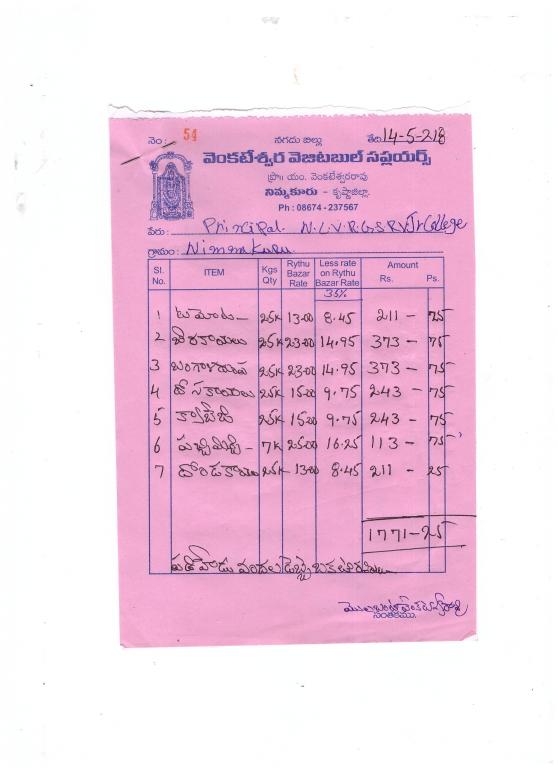 నెం : 54 నగదు బిల్లు తేది 14-5-218
వెంకటేశ్వర వెజిటబుల్ సప్లయర్స్
ప్రొ॥ యం. వెంకటేశ్వరరావు
నిమ్మకూరు - కృష్ణాజిల్లా.
Ph : 08674 - 237567
పేరు : Principal. N.L.V.R.G.S.R.V.Jr College
గ్రామం : Nimmakuru
Sl. No. ITEM Kgs Qty Rythu Bazar Rate Less rate on Rythu Bazar Rate Amount Rs. Ps.
35%
1 టమాటా - 25K 13.00 8.45 211 - 75
2 బీరకాయలు 25K 23.00 14.95 373 - 75
3 బంగాళదుంప 25K 23.00 14.95 373 - 75
4 దోసకాయలు 25K 15.00 9.75 243 - 75
5 క్యాబేజి 25K 15.00 9.75 243 - 75
6 పచ్చిమిర్చి - 7K 25.00 16.25 113 - 75
7 దొండకాయలు 25K 13.00 8.45 211 - 25
1771-25
పదిహేడు వందల డెబ్బై ఒకటి
సంతకము.